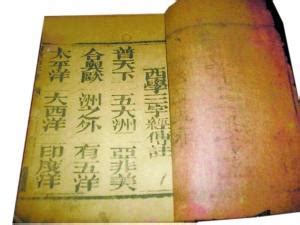 西學三字經註
普天下 五大洲 亞非美
合歐 洲之外 有五洋
太平洋 大西洋 印度洋